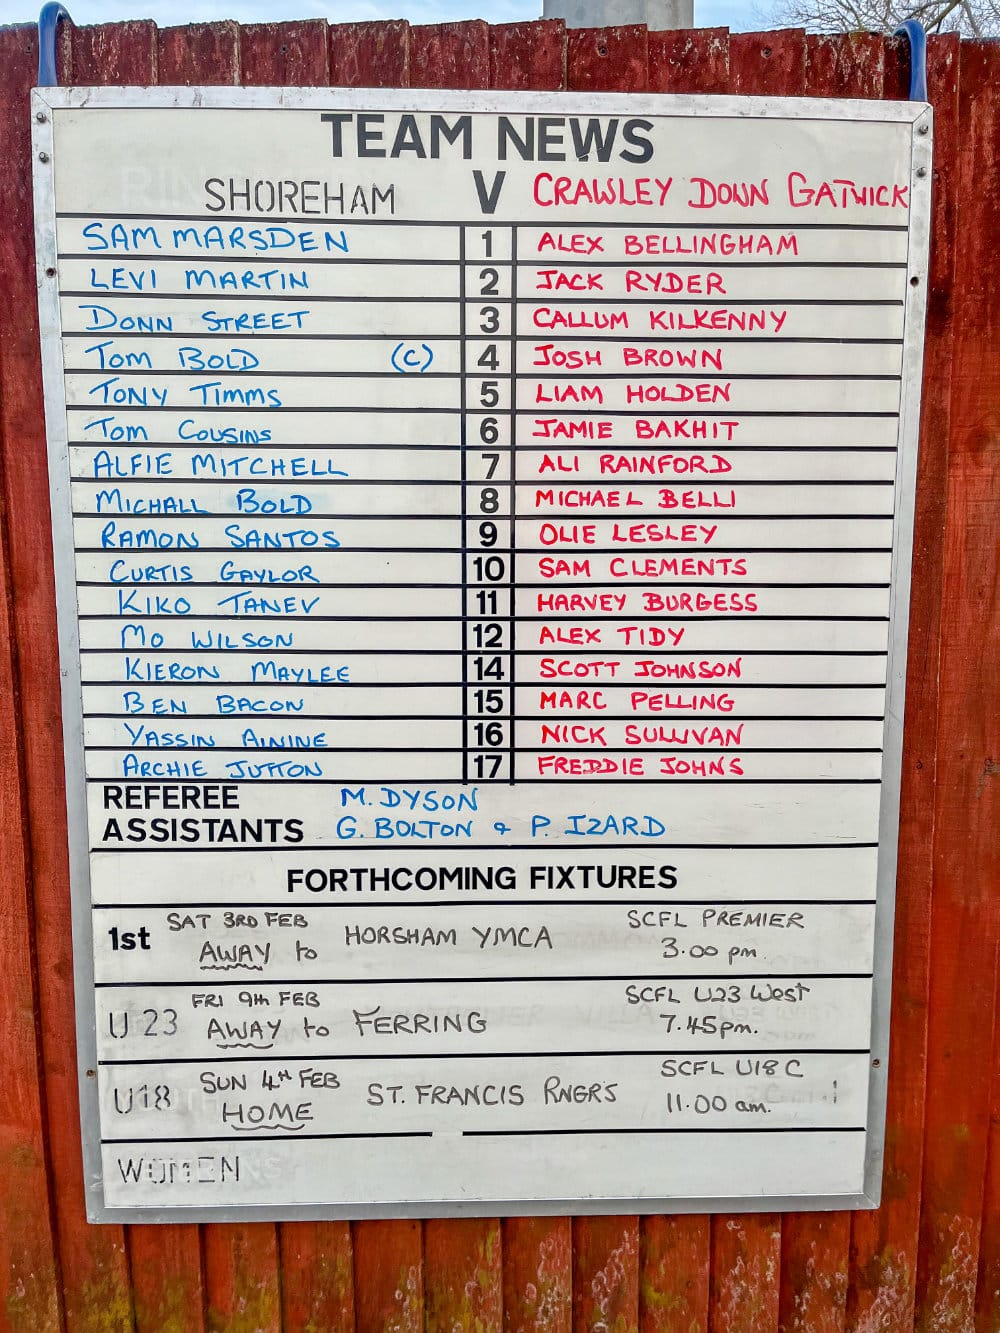 TEAM NEWS
SHOREHAM V CRAWLEY DOWN GATWICK
SAM MARSDEN 1 ALEX BELLINGHAM
LEVI MARTIN 2 JACK RYDER
DONN STREET 3 CALLUM KILKENNY
TOM BOLD (C) 4 JOSH BROWN
TONY TIMMS 5 LIAM HOLDEN
TOM COUSINS 6 JAMIE BAKHIT
ALFIE MITCHELL 7 ALI RAINFORD
MICHALL BOLD 8 MICHAEL BELLI
RAMON SANTOS 9 OLIE LESLEY
CURTIS GAYLOR 10 SAM CLEMENTS
KIKO TANEV 11 HARVEY BURGESS
MO WILSON 12 ALEX TIDY
KIERON MAYLEE 14 SCOTT JOHNSON
BEN BACON 15 MARC PELLING
YASSIN AININE 16 NICK SULLIVAN
ARCHIE JUTTON 17 FREDDIE JOHNS
REFEREE M. DYSON
ASSISTANTS G. BOLTON & P. IZARD
FORTHCOMING FIXTURES
SAT 3RD FEB SCFL PREMIER
1st AWAY to HORSHAM YMCA 3.00 pm.
FRI 9TH FEB SCFL U23 West
U23 AWAY to FERRING 7.45pm.
SUN 4TH FEB SCFL U18 C
U18 HOME ST. FRANCIS RNGRS 11.00 am.
WOMEN